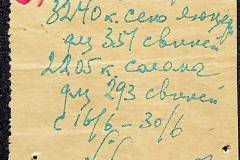 3240 к. сено
для 351 свиней
2205 к. солома
для 293 свиней
с 16/6 - 30/6